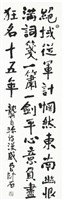 絕域從軍計惘然東南幽恨
滿詞箋一簫一劍平生意負盡
狂名十五年 龔自珍漫感